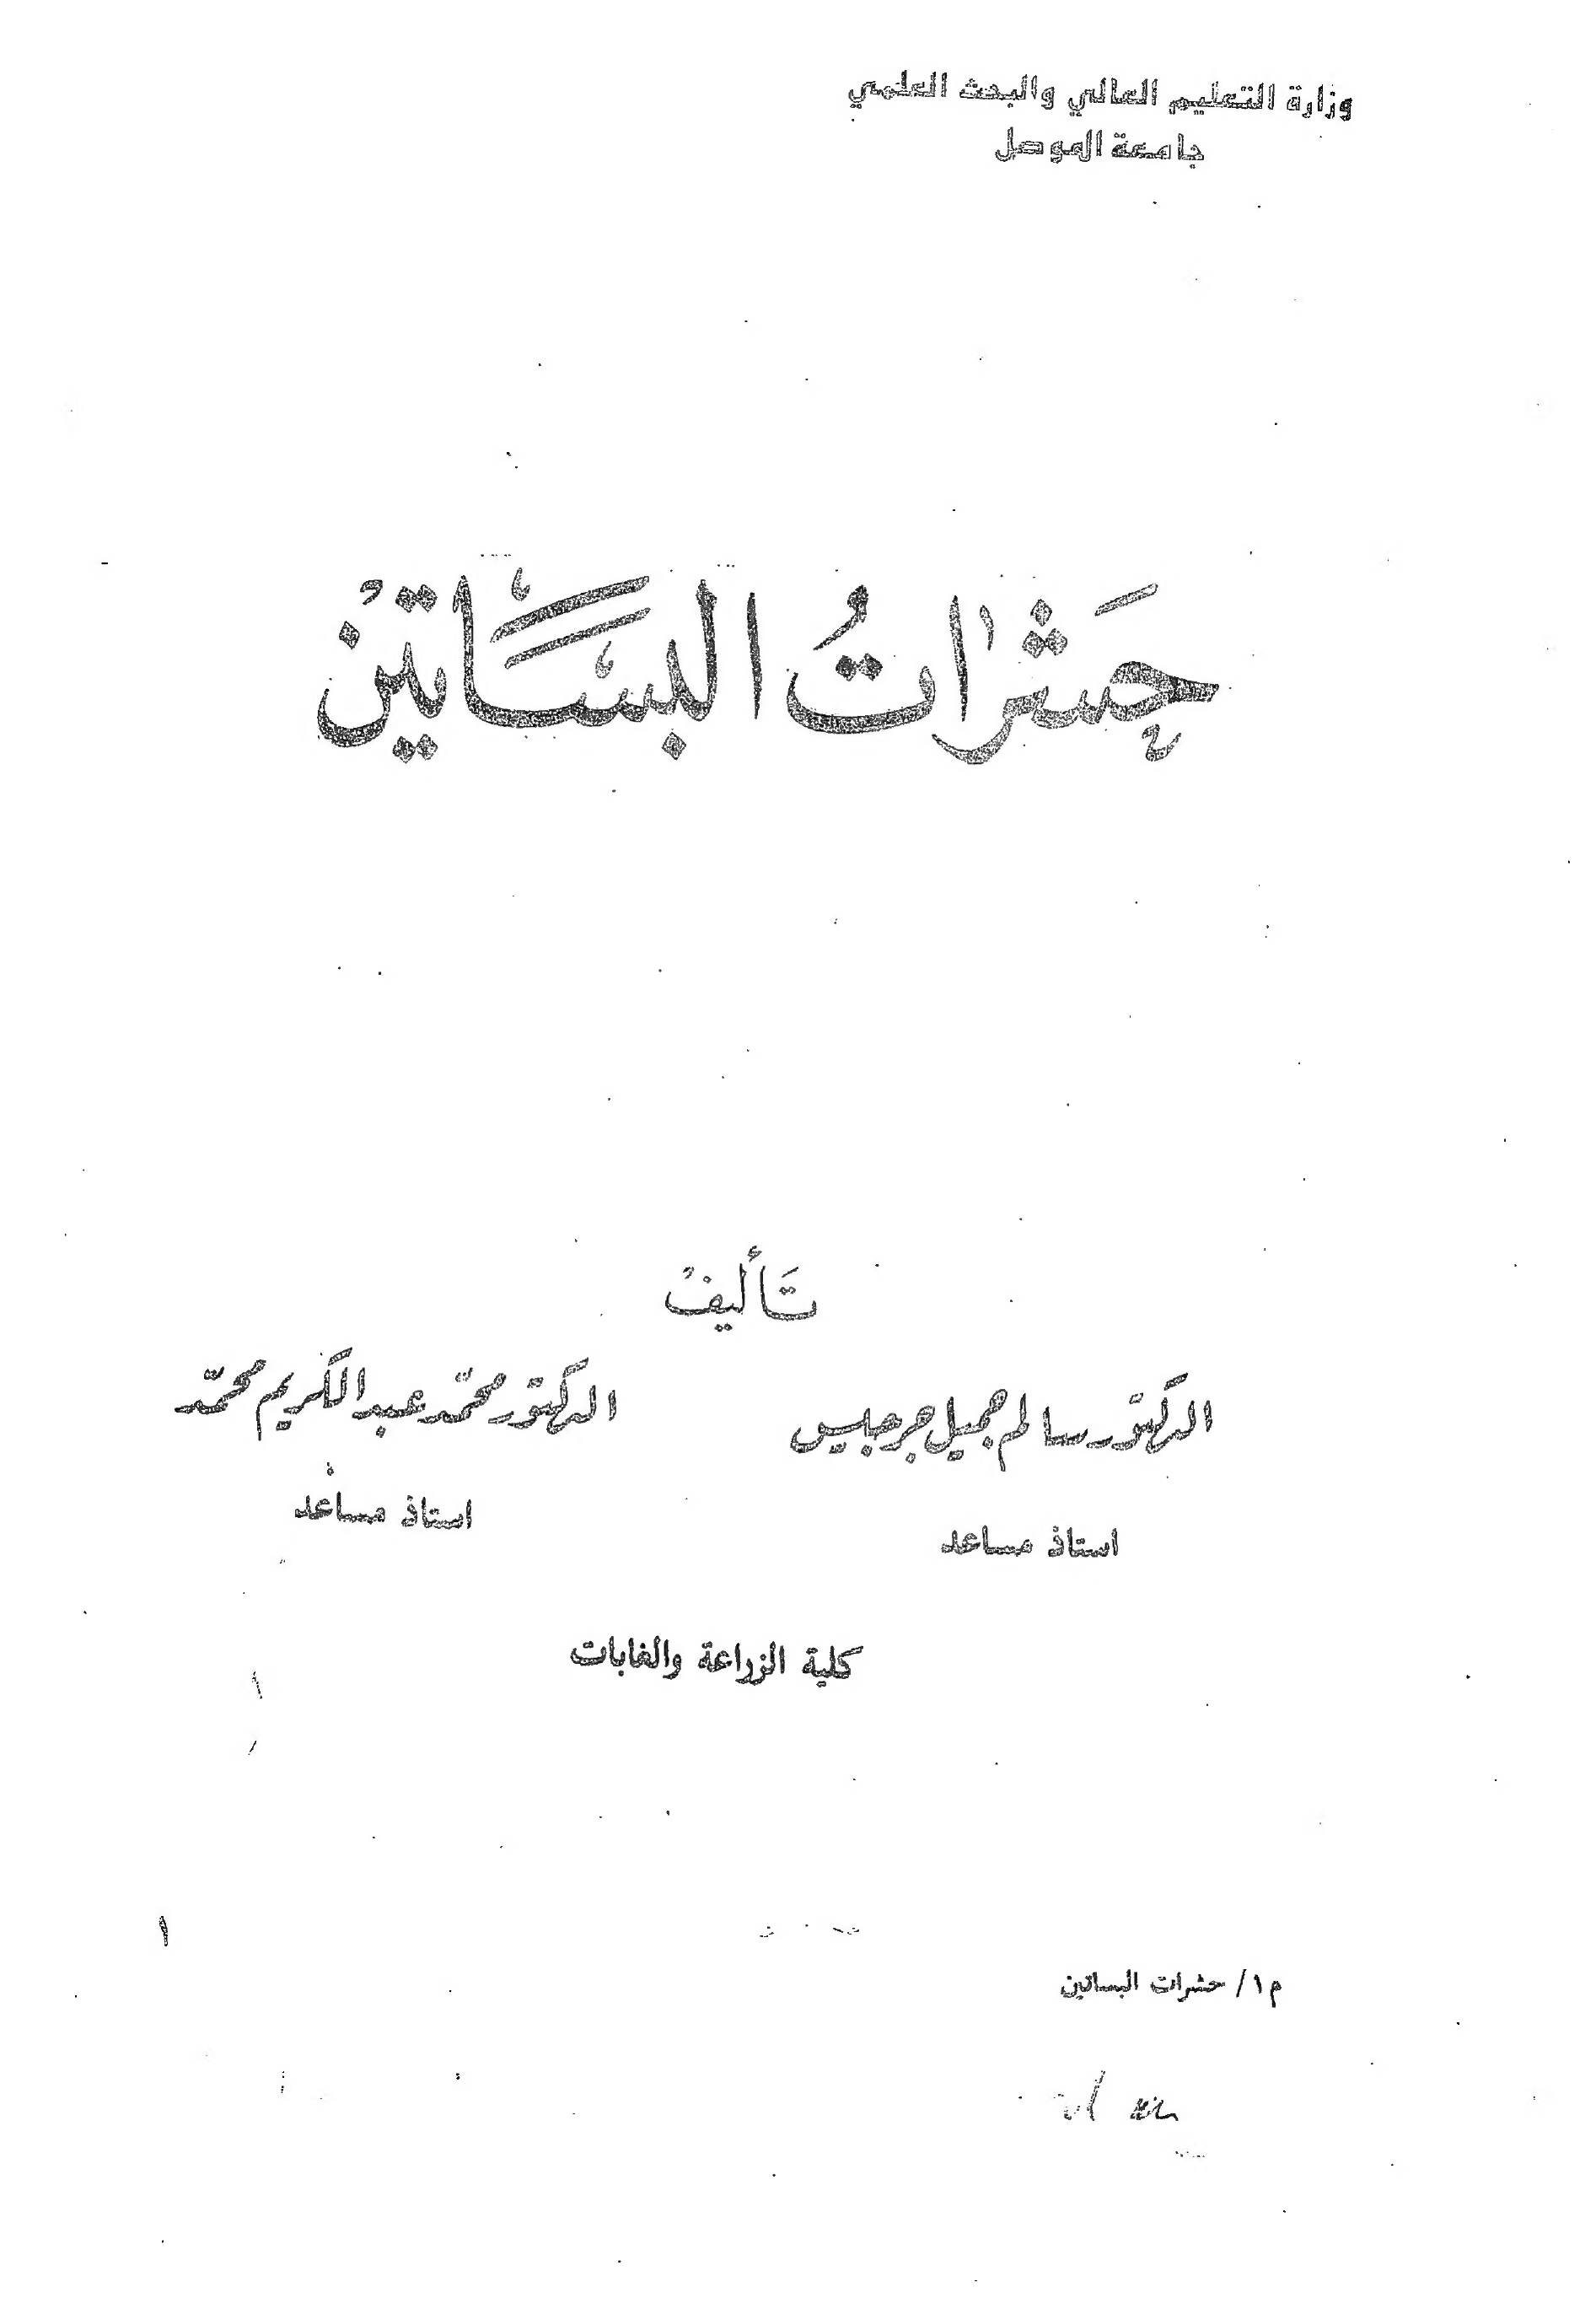 وزارة التعليم العالي والبحث العلمي
جامعة الموصل
حَشرات البسَاتين
تَأليف
الدكتور سالم جميل جرجيس
الدكتور محمّد عبد الكريم محمّد
استاذ مساعد
استاذ مساعد
كلية الزراعة والغابات
١
م١/ حشرات البساتين